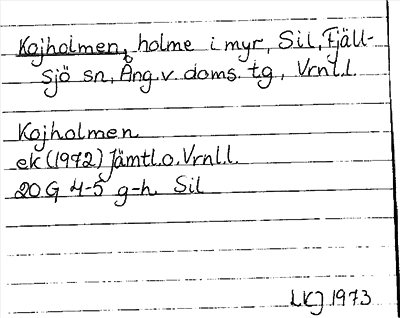 Kojholmen, holme i myr, Sil, Fjäll-
sjö sn, Ång.v. doms. tg., Vrnl.l.
Kojholmen
ek (1972) Jämtl.o. Vrnl.l.
20 G 4-5 g-h Sil
LKJ 1973